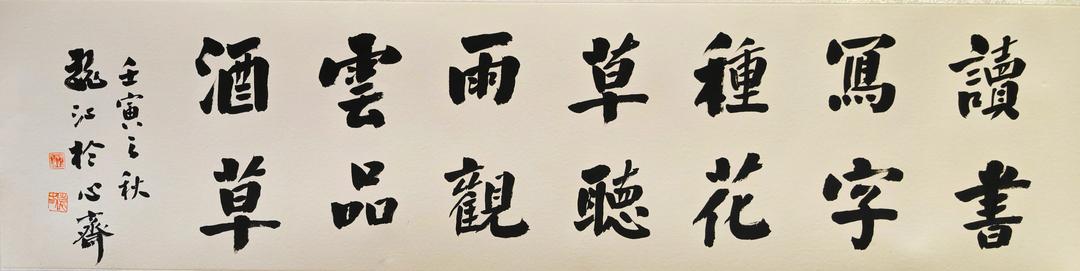 讀書
寫字
種花
草聽
雨觀
雲品
酒草
壬寅之秋
江於心齋